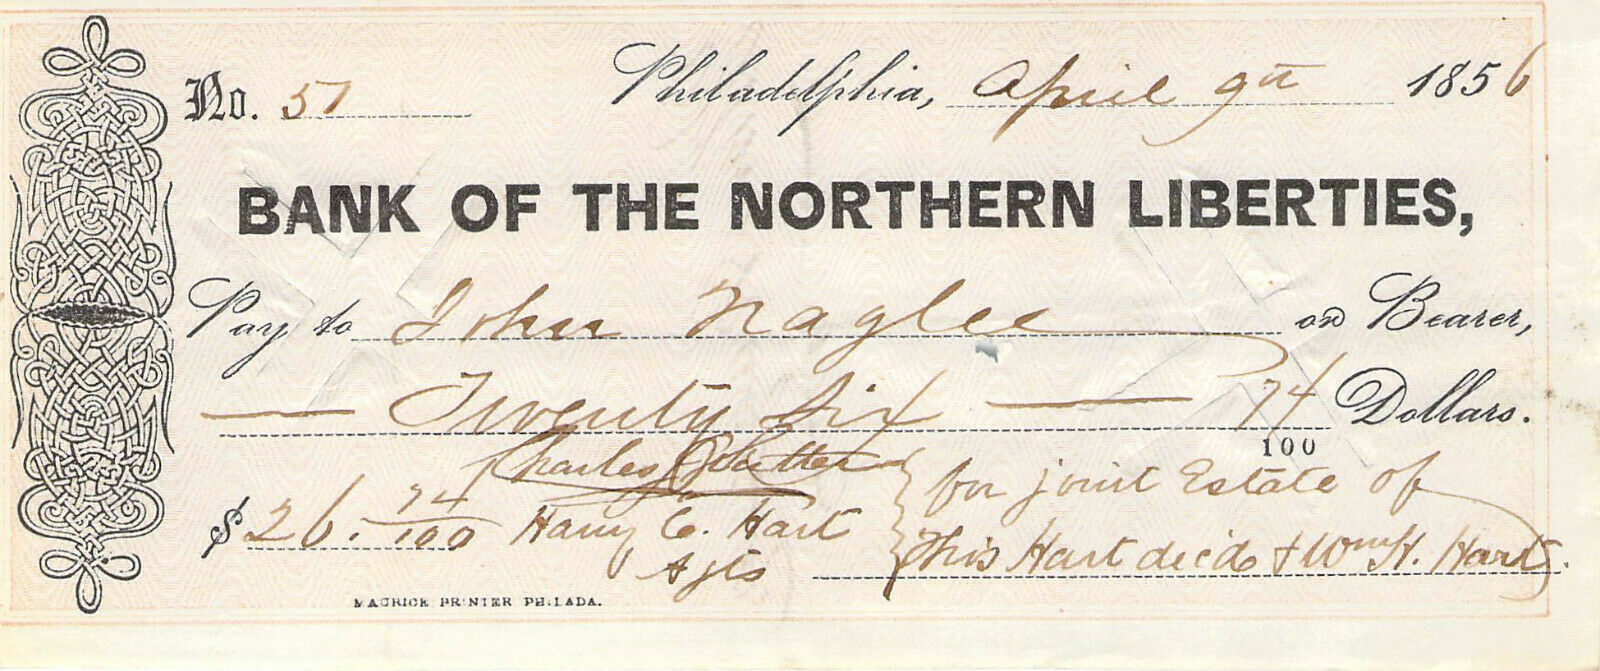 No. 57 Philadelphia, April 9th 1856
BANK OF THE NORTHERN LIBERTIES,
Pay to John Naglee or Bearer,
Twenty Six 74/100 Dollars.
$26. 74/100
Charles
Harry C. Hart
Agts
for joint Estate of
Hart dec'd & Wm H. Hart
MAURICE PRINTER PHILADA.